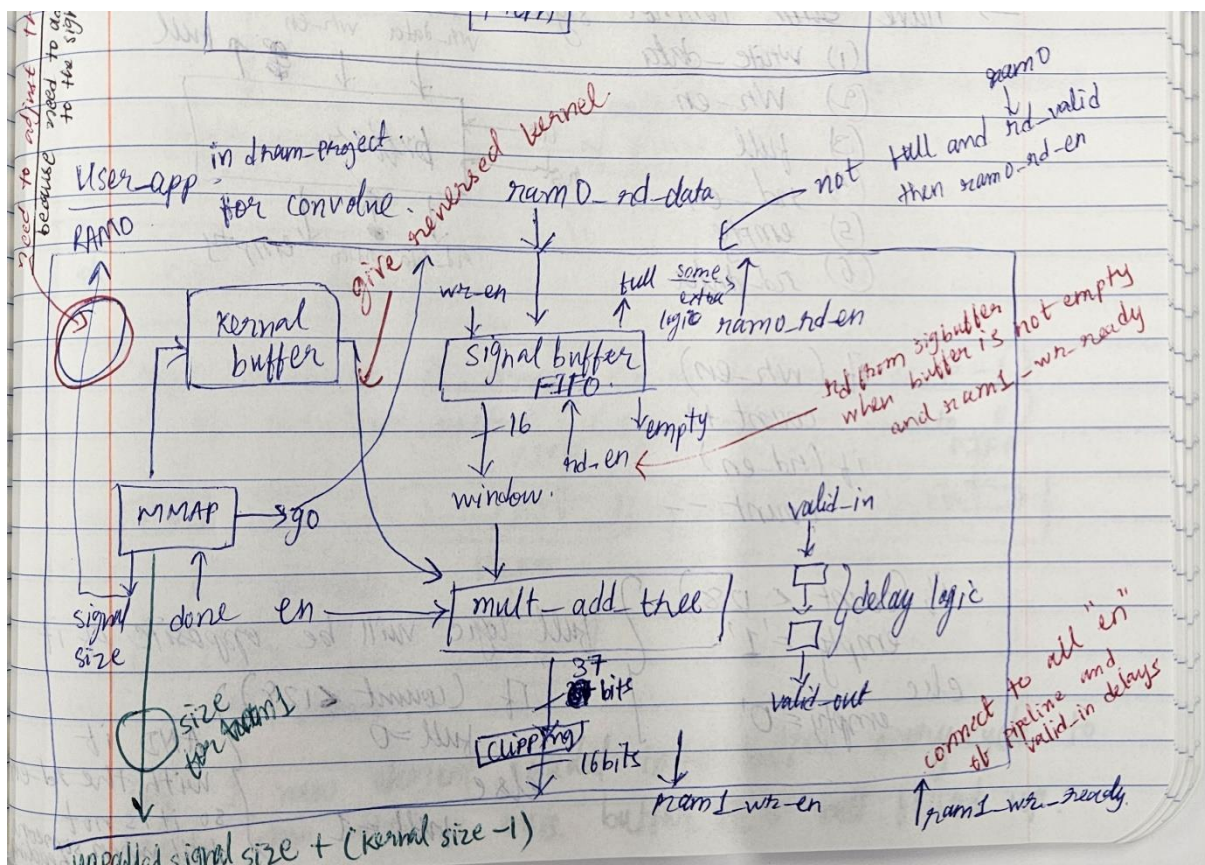 need to adjust th
because need to ad
to the sig
User_app
in dram_project
for convolve.
RAM0
give reversed kernel.
ram0_rd_data
ram0
not full and rd_valid
then ram0_rd_en
Kernal
buffer
wr-en
full
some
extra
logic
ram0_rd_en
signal buffer
FIFO.
16
rd-en
empty
rd from sigbuffer
when buffer is not empty
and ram1_wr_ready
window.
MMAP
go
signal
size
done
en
mult_add_tree
valid_in
delay logic
valid_out
37
bits
Clipping
16bits
size
for ram1
ram1_wr_en
connect to all "en"
of pipeline and
valid_in delays
ram1_wr_ready.
signal size + (kernal size -1)